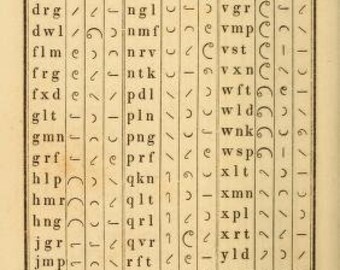 drg ngl vgr
dwl nmf vmp
flm nrv vst
frg ntk vxn
fxd pdl wft
glt pln wld
gmn png wnk
grf prf wsp
hlp qkn xlt
hmr qlt xmn
hng qrl xpl
jgr qvr xrt
jmp rft yld